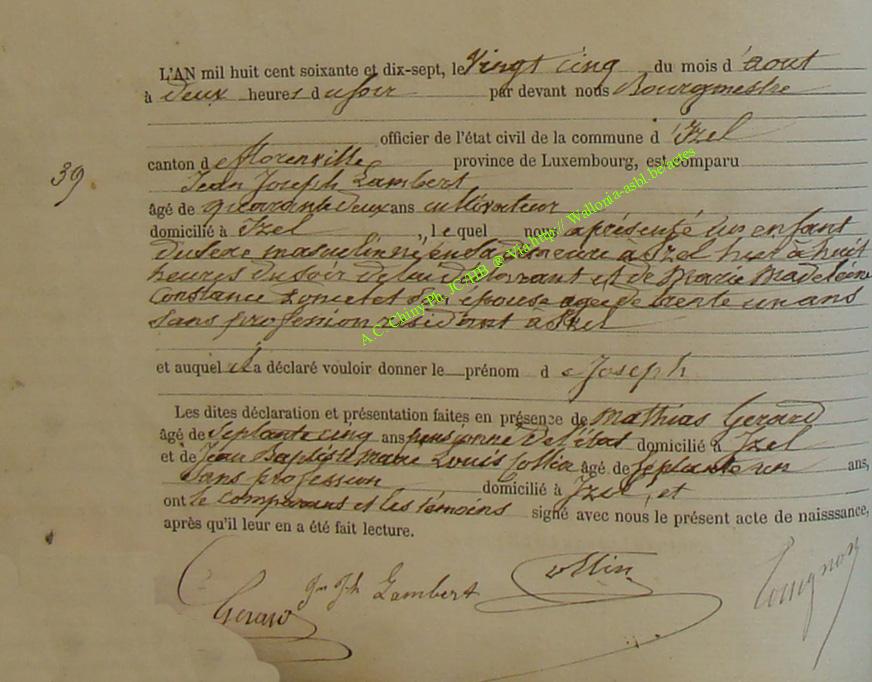 L'AN mil huit cent soixante et dix-sept, le Vingt cinq du mois d'aout
à deux heures du soir par devant nous Bourgmestre
officier de l'état civil de la commune d'Izel
canton de florenville province de Luxembourg, est comparu
39
Jean Joseph Lambert
âgé de quarante deux ans cultivateur
domicilié à Izel, lequel nous a présenté un enfant
du sexe masculin né en sa demeure à Izel hier à huit
heures du soir de lui déclarant et de Marie Madeleine
Constance son épouse agée de trente un ans
sans profession résidant à Izel
et auquel il a déclaré vouloir donner le prénom de Joseph
Les dites déclaration et présentation faites en présence de Mathias Gerard
âgé de septante cinq ans pensionné de l'état domicilié à Izel
et de Jean Baptiste Marie Louis Collin âgé de septante un ans,
sans profession domicilié à Izel, et
ont le comparant et les témoins signé avec nous le présent acte de naisssance,
après qu'il leur en a été fait lecture.
Jn Jh Lambert Collin
Gerard
A.C. Chiny Ph. JC-HB @ Via http:// Wallonia-asbl.be/actes